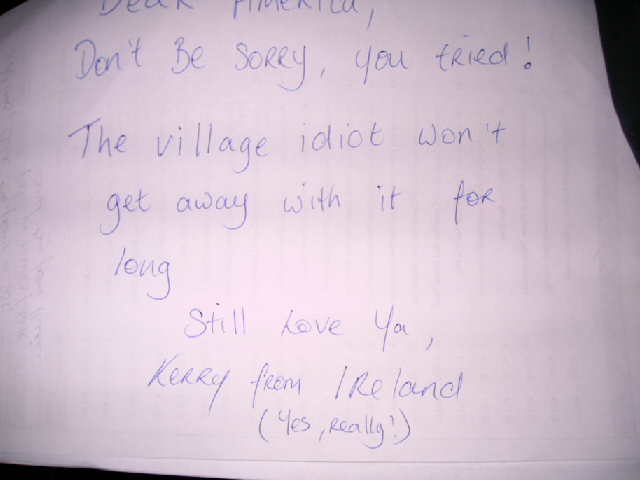 Dear America,
Don't Be Sorry, you tried!
The village idiot won't
get away with it for
long
Still Love Ya,
Kerry from Ireland
(Yes, really!)